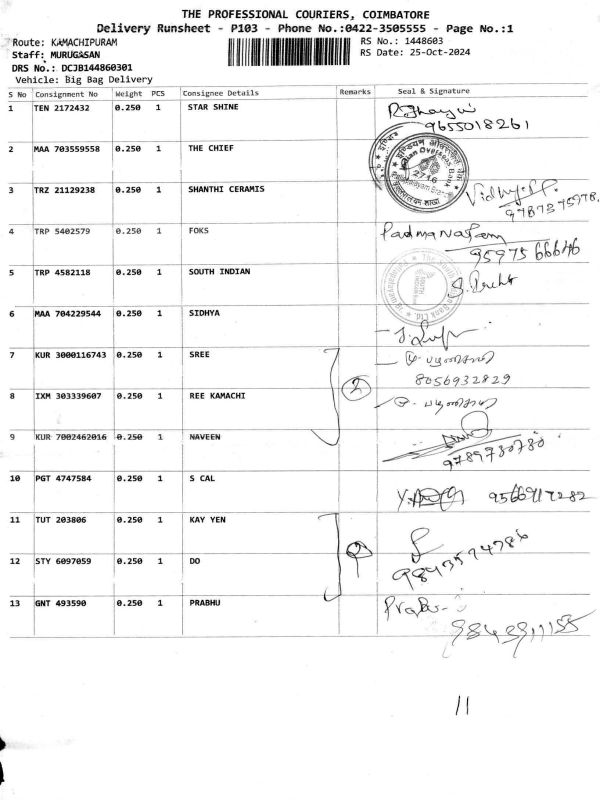 THE PROFESSIONAL COURIERS, COIMBATORE
Delivery Runsheet - P103 - Phone No.:0422-3505555 - Page No.:1
Route: KAMACHIPURAM
RS No.: 1448603
Staff: MURUGASAN
RS Date: 25-Oct-2024
DRS No.: DCJB144860301
Vehicle: Big Bag Delivery
S No Consignment No Weight PCS Consignee Details Remarks Seal & Signature
1 TEN 2172432 0.250 1 STAR SHINE
9655018261
2 MAA 703559558 0.250 1 THE CHIEF
Indian Overseas Bank
2716
3 TRZ 21129238 0.250 1 SHANTHI CERAMIS
4 TRP 5402579 0.250 1 FOKS Padmanatam
95975 66646
5 TRP 4582118 0.250 1 SOUTH INDIAN
6 MAA 704229544 0.250 1 SIDHYA
7 KUR 3000116743 0.250 1 SREE
2 8056932829
8 IXM 303339607 0.250 1 REE KAMACHI
9 KUR 7002462016 0.250 1 NAVEEN
9789730780
10 PGT 4747584 0.250 1 S CAL 9566917282
11 TUT 203806 0.250 1 KAY YEN
2
12 STY 6097059 0.250 1 DO 9843574786
13 GNT 493590 0.250 1 PRABHU Prabu
11